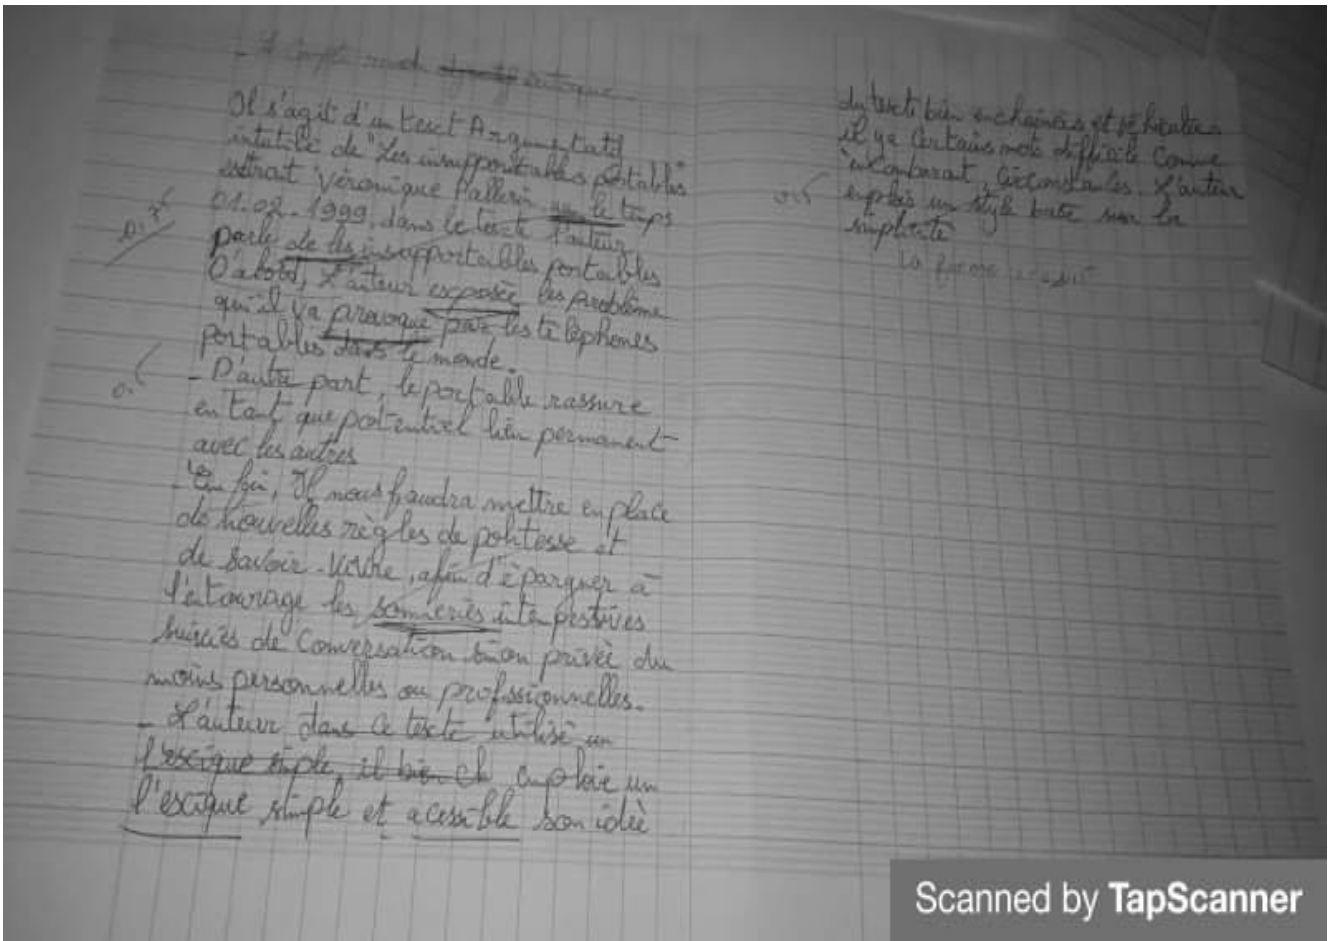 - Compte rendu critique
Il s'agit d'un text Argumentatif
intutilé de "Les insupportables portables"
extrait véronique Pallerin le temps
01.02.1999, dans le texte l'auteur
parle de les insapportaibles portables
D'abord, L'auteur exposée les problème
qu'il ya pravoqué par les téléphones
portables dans le monde.
- D'autre part, le portable rassure
en tant que potentiel lien permanent
avec les autres
- En fin, Il nous faudra mettre en place
de nouvelles règles de politesse et
de savoir-vivre, afin d'épargner à
l'entourage les sonneries intempestives
suivies de Conversation sinon privée du
moins personnelles ou professionnelles.
- L'auteur dans ce texte utilisé un
l'exique simple, il bien ch emploie un
l'exique simple et acessible son idée
du texte bien enchainées et véhiculées
il ya Certains mots difficile Comme
encombrant, Circonstances. L'auteur
emplois un style basé sur la
simplicité
la forme
Scanned by TapScanner